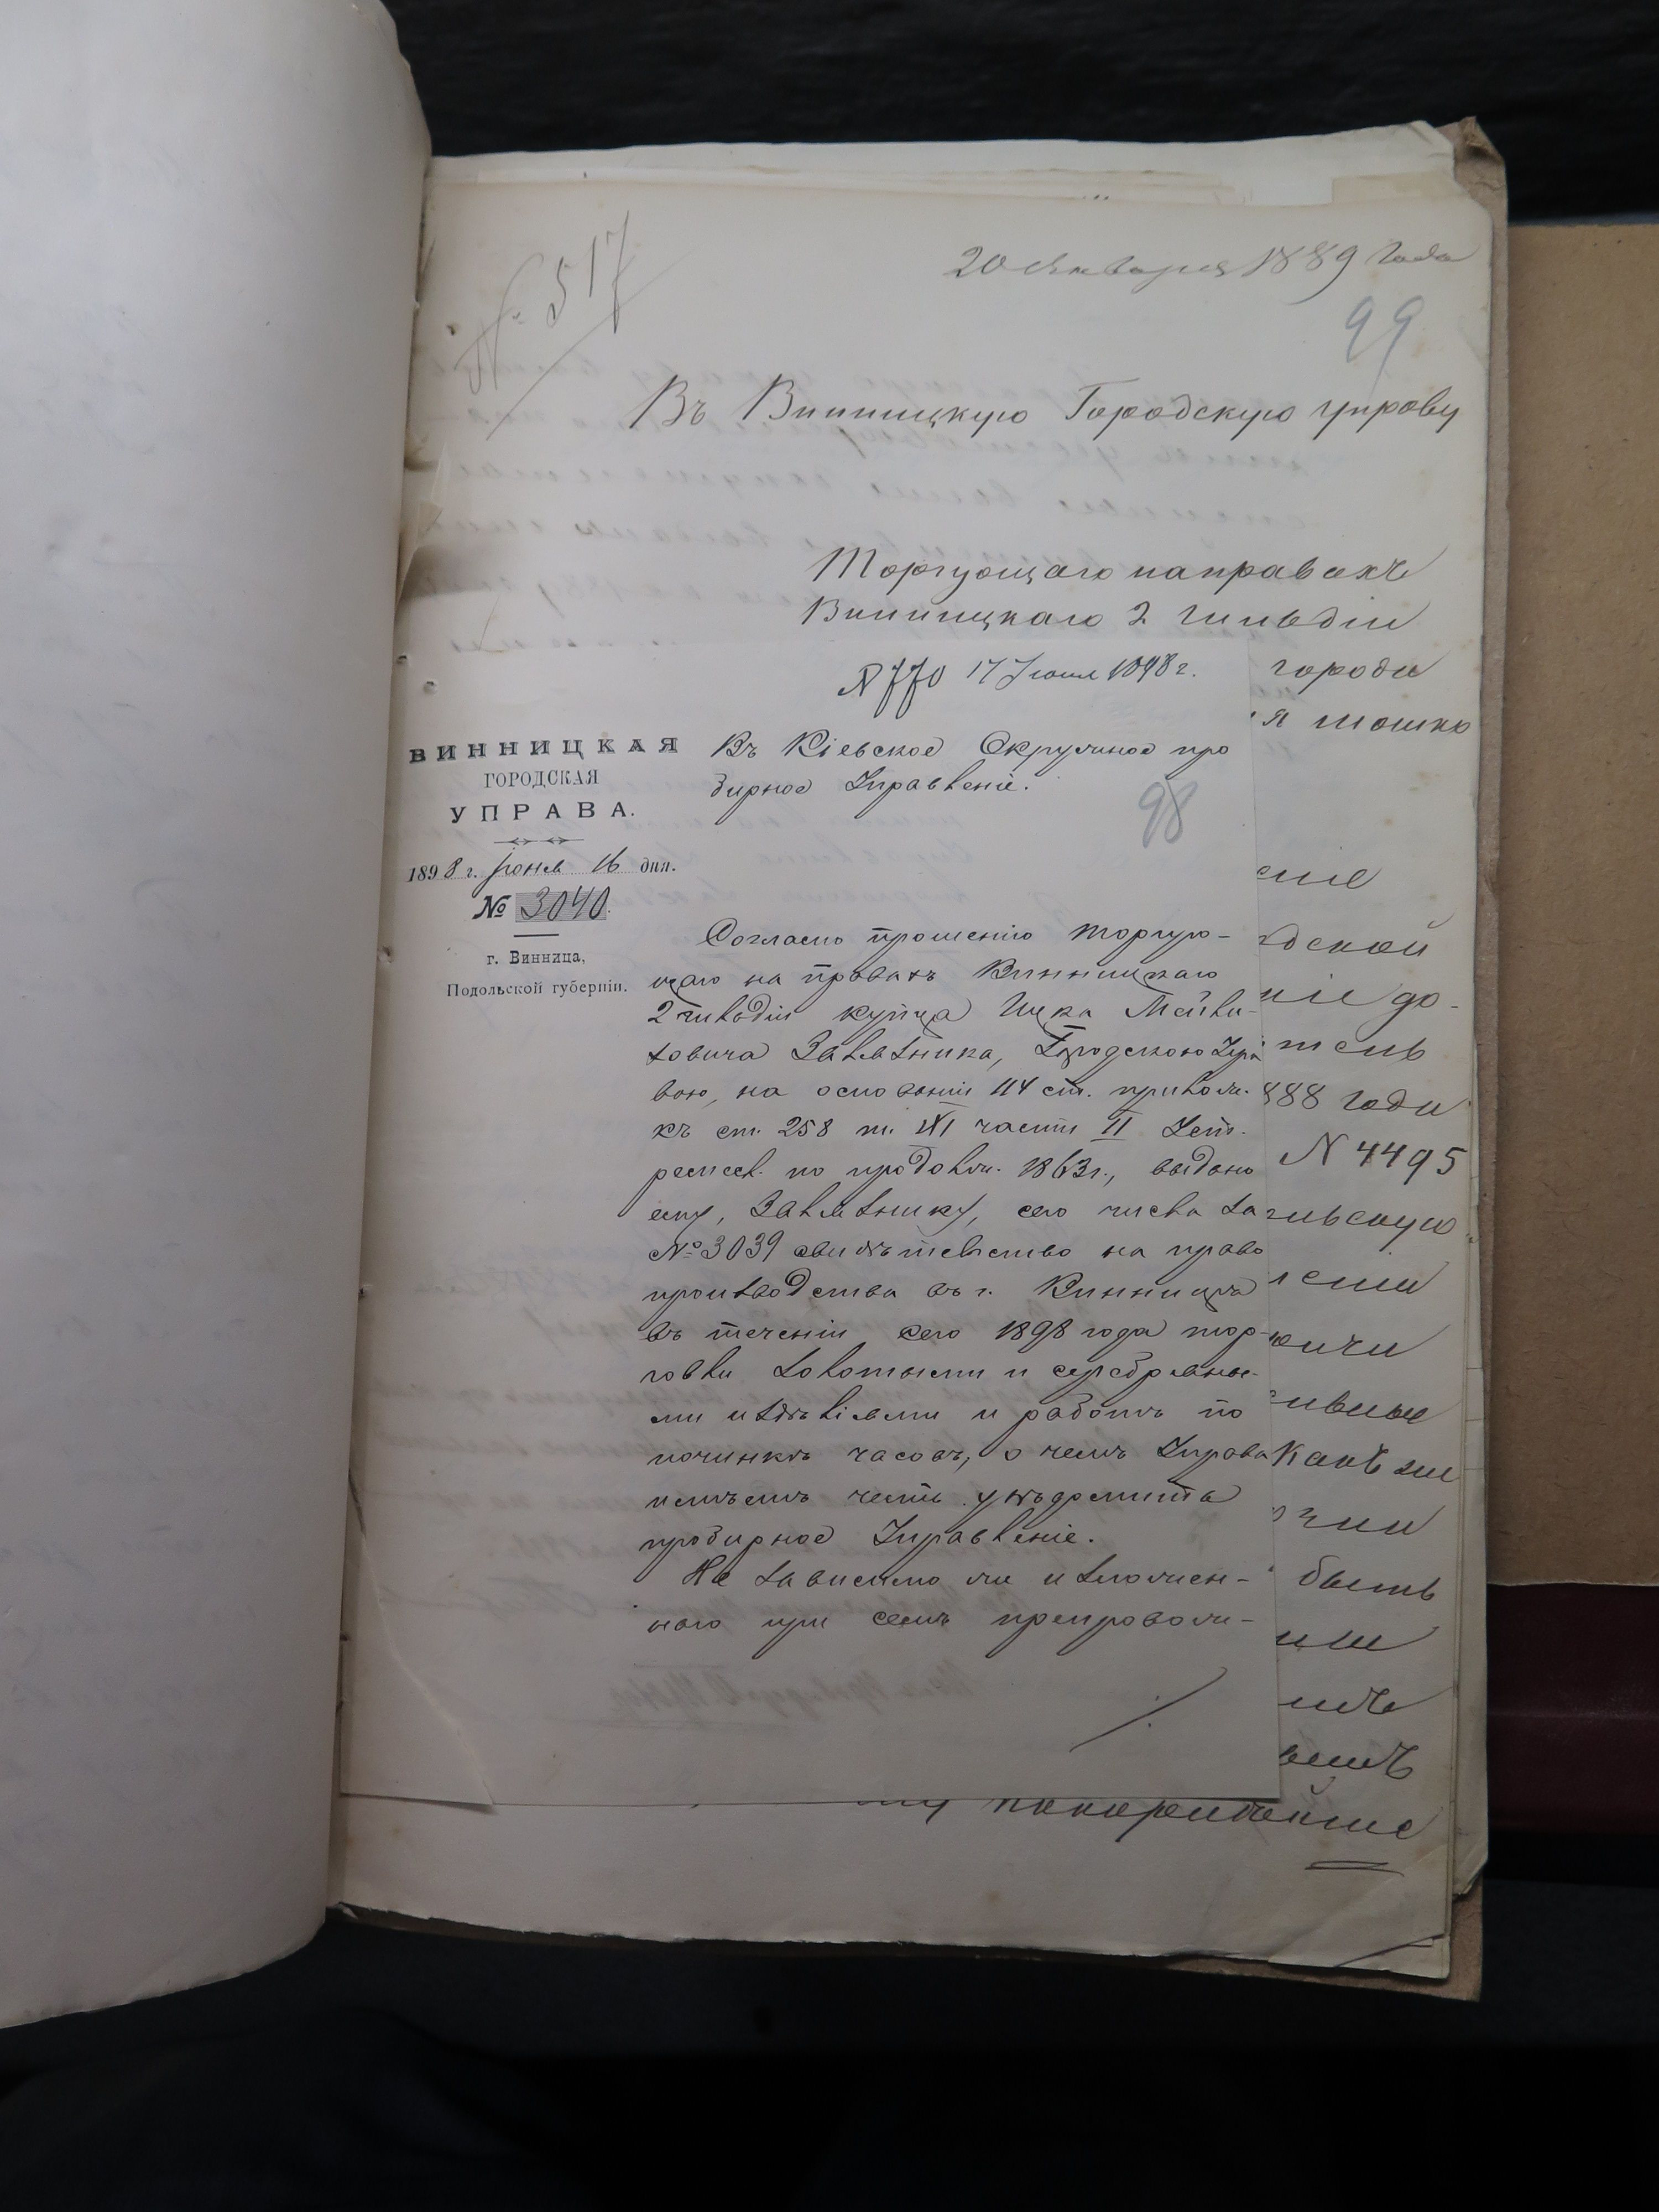 № 517
20 Января 1889 года
99
Въ Винницкую Городскую управу
Торгующаго направахъ
Винницкаго 2 гильдіи
города
я мошко
№ 770 17 Іюня 1898 г.
ВИННИЦКАЯ
ГОРОДСКАЯ
УПРАВА.
1898 г. Іюня 16 дня.
№ 3040.
г. Винница,
Подольской губерніи.
Въ Кіевское Окружное про
бирное Управленіе.
98
Согласно прошенію торгую-
щаго на правахъ Винницкаго
2 гильдіи купца Ицка
зовича Завлзника, Городскою Упра
вою, на основаніи 114 ст. прилож.
къ ст. 258 т. XI части II Уст.
ремесл. по продолж. 1863 г., выдано
ему, Завлзнику, сего числа за
№ 3039 свидѣтельство на право
производства въ г. Винницѣ
въ теченіи сего 1898 года тор-
говли золотыми и серебряны-
ми издѣліями и работъ по
починкѣ часовъ, о чемъ Управа
имѣетъ честь увѣдомить
пробирное Управленіе.
Не зависимо же изложен-
наго при семъ препровож-
еніе
дской
ніе до-
тель
888 года
№ 4495
гильскую
быть
покорнѣйше